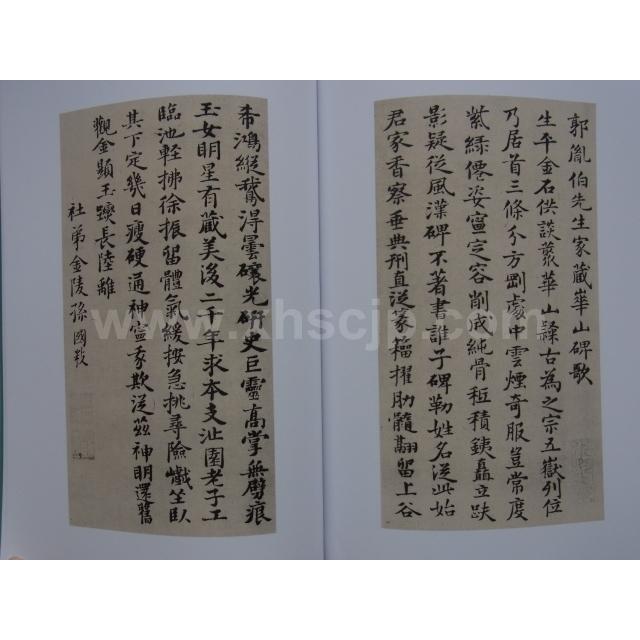 郭胤伯先生家藏華山碑歌
生平金石供談叢華山隸古為之宗五嶽列位
乃居首三條分方剛處中雲煙奇服豈常度
紫綠僊姿寍定容削成純骨秪積鐵矗立趺
影疑從風漢碑不著書誰子碑勒姓名從此始
君家香察垂典刑直從篆籀擢肋髓翻留上谷
希鴻縱鵞得曇礦光研史巨靈高掌無劈痕
玉女明星有藏美後二千年求本支沚園老子工
臨池輕拂徐振留體氣緩按急挑尋險巇坐臥
其下定幾日瘦硬通神寍我欺從茲神明還舊
觀金顯玉躞長陸離
社弟金陵孫國敉
www.xhscjp.com